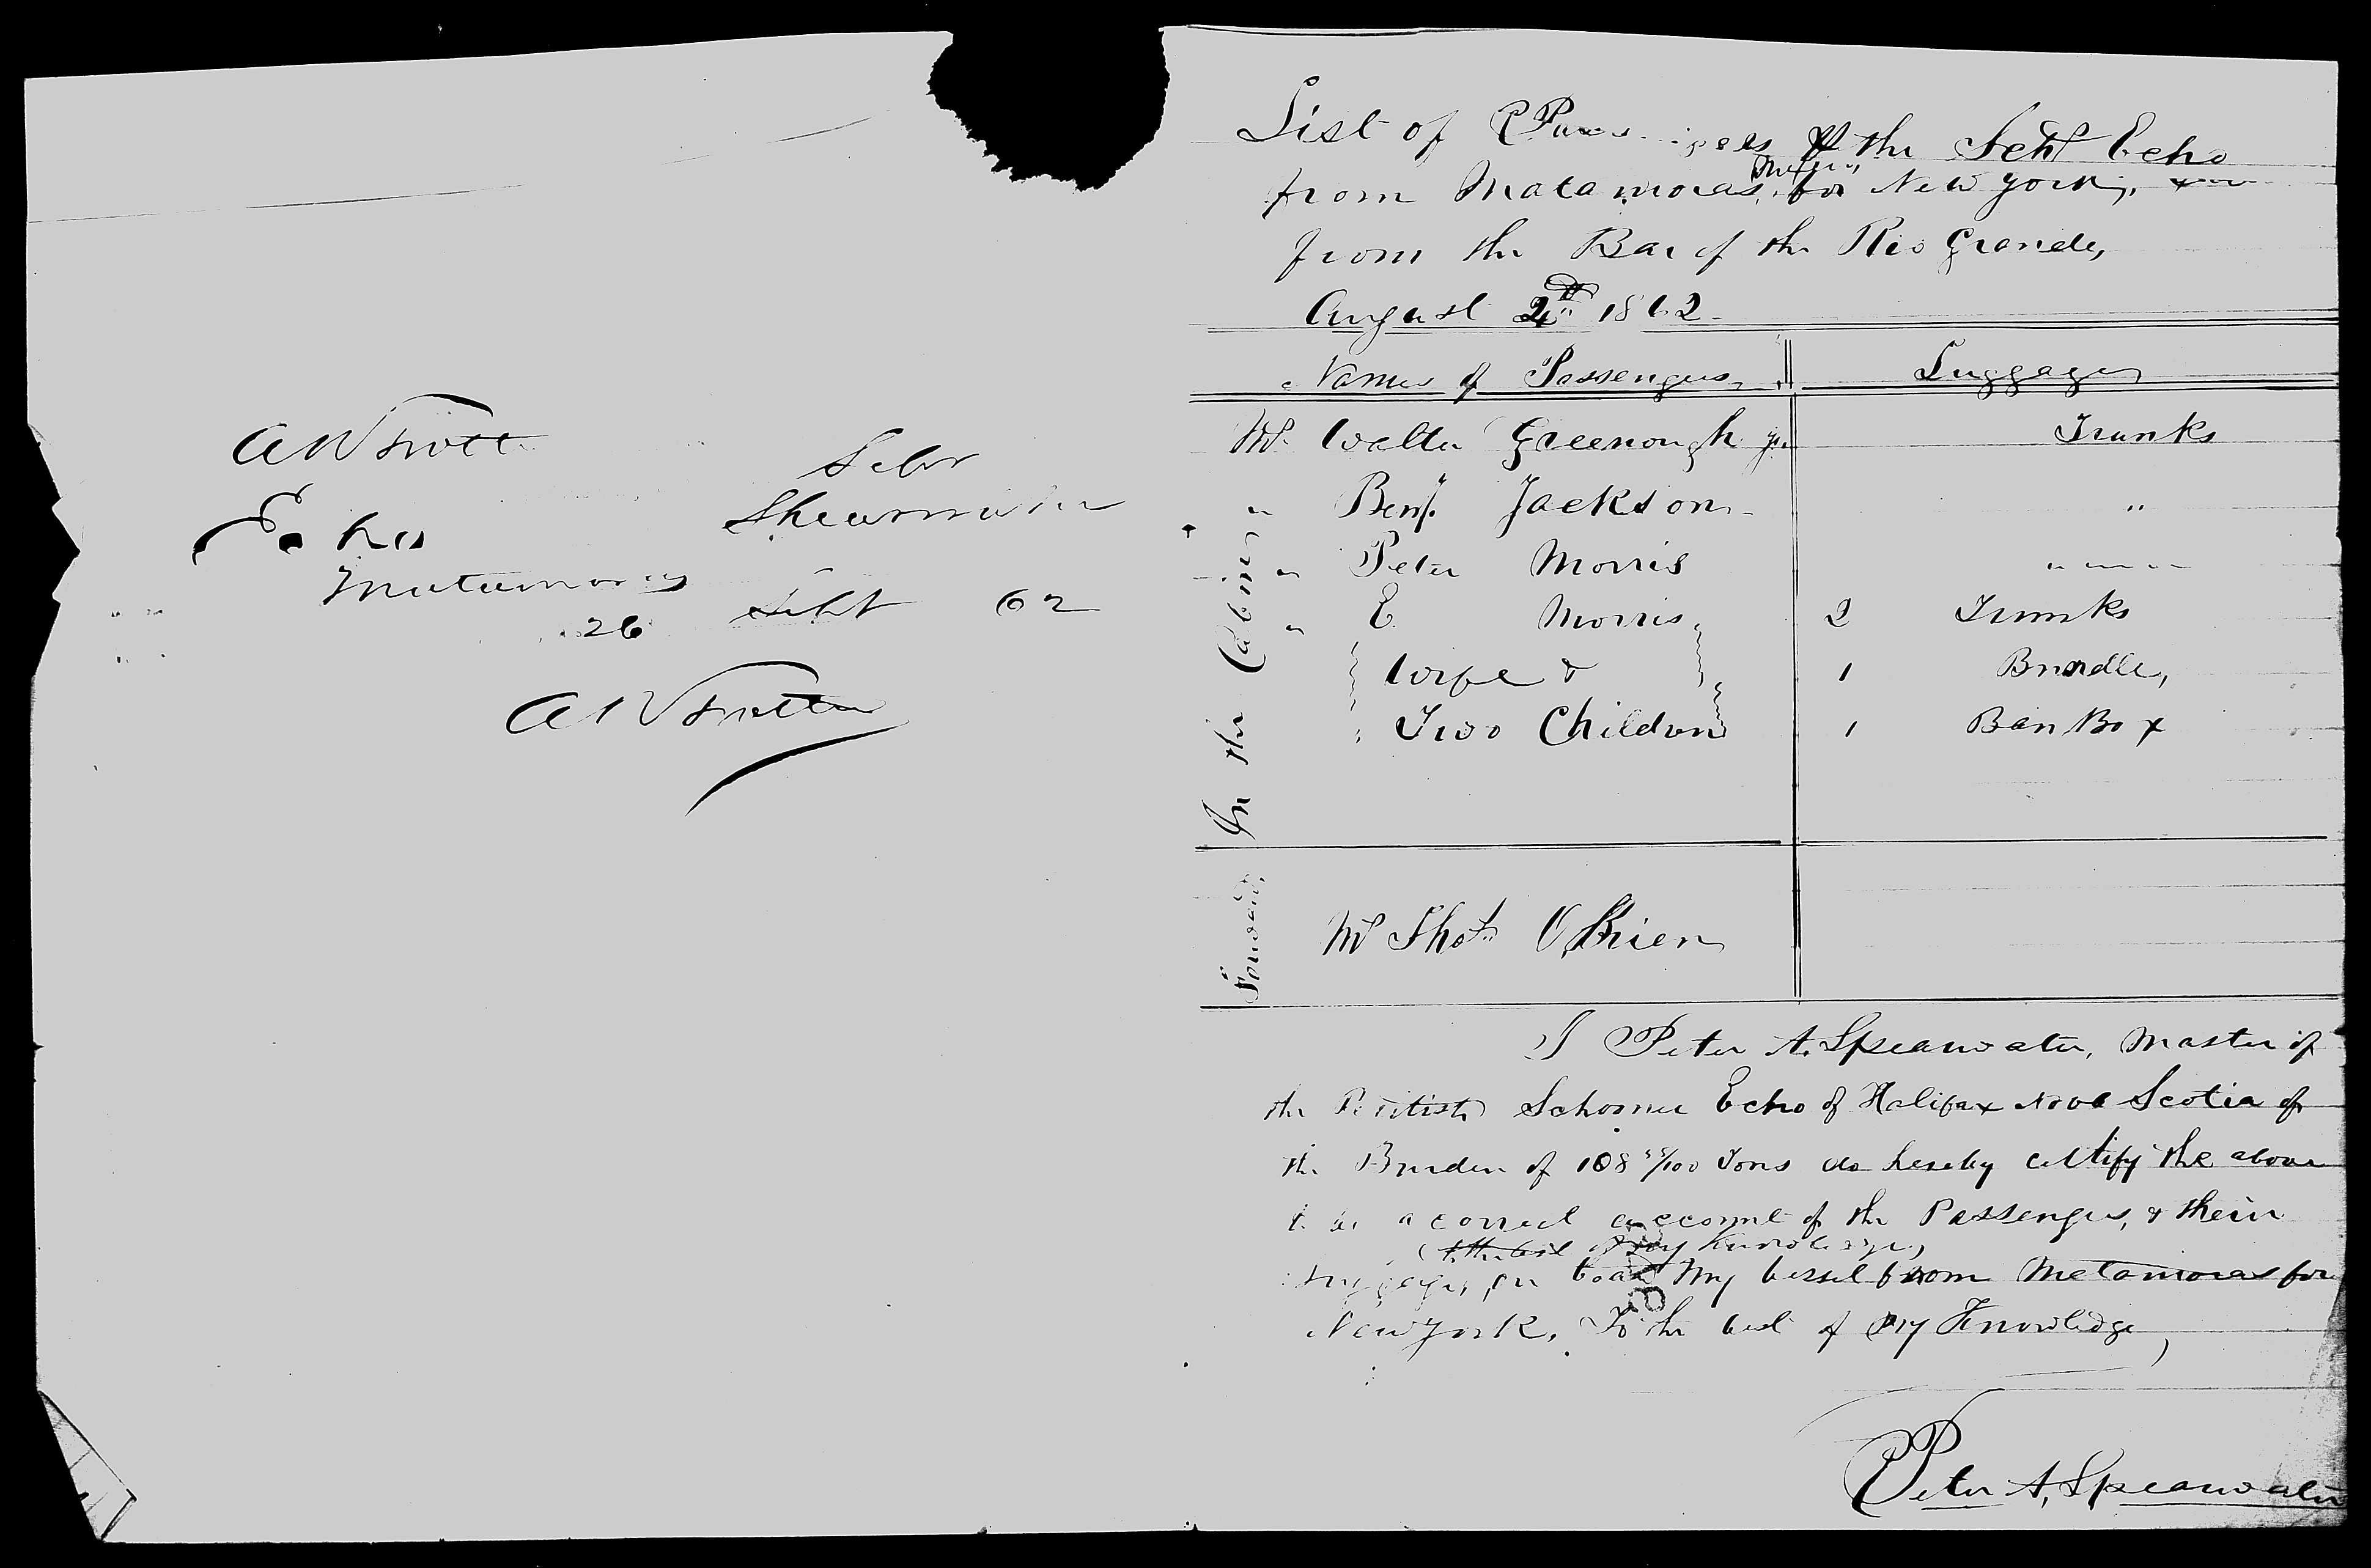 Echo
Matamoras
26 Sept 62
List of the Schr Echo
from Matamoras, for New York,
from the Bar of the Rio Grande,
August 1862
Names of Passengers, Luggage
In the Cabin
Mr. Walter Greenough jr. Trunks
" Benj. Jackson "
" Peter Morris " " " "
" E Morris, 2 Trunks
Wife & 1 Bundle,
Two Children 1 Ban Box
Forward
Mr Thos O,Brien
I Peter A. Spearwater, Master of
the British Schooner Echo of Halifax Nova Scotia of
the Burden of 108 /100 Tons do hereby certify the above
to be a correct account of the Passengers, & their
(to the best of my Knowledge,)
Luggage, on board my vessel from Metamoras for
New York. To the best of my Knowledge,
Peter A, Spearwater